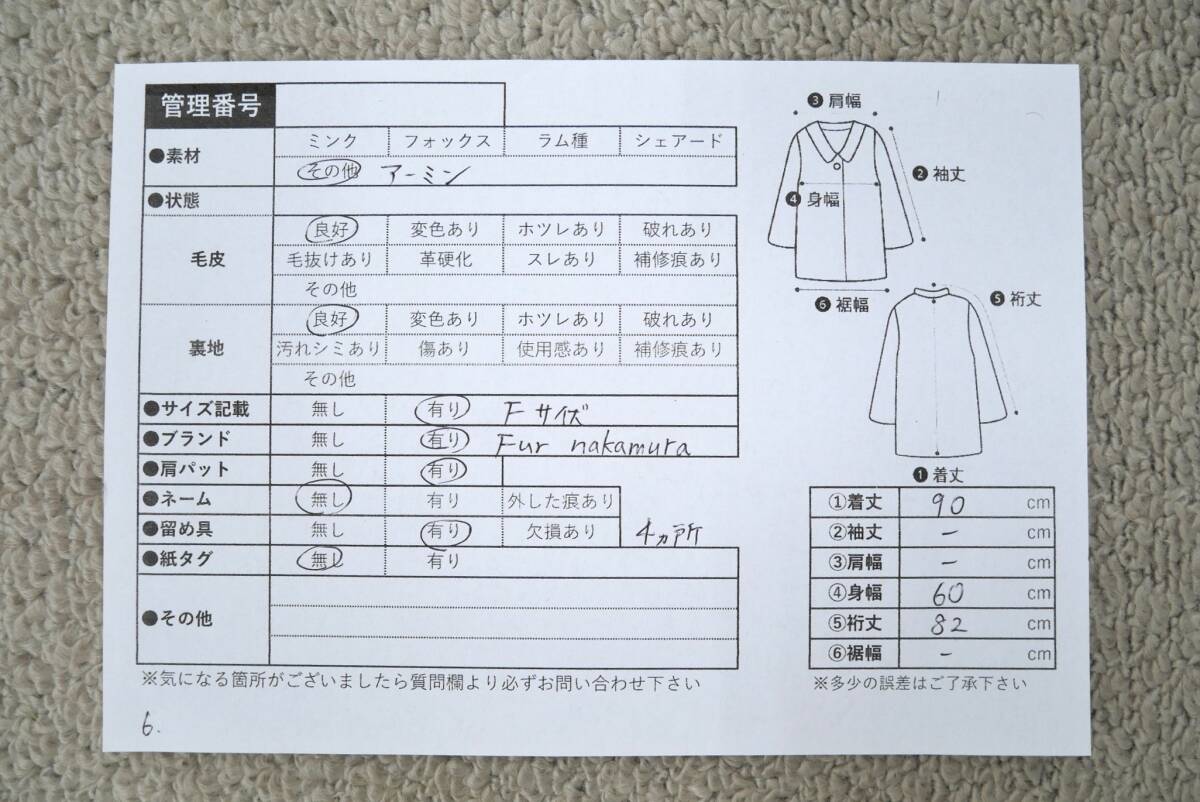 管理番号
●素材 ミンク フォックス ラム種 シェアード
その他 アーミン
●状態
毛皮 良好 変色あり ホツレあり 破れあり
毛抜けあり 革硬化 スレあり 補修痕あり
その他
裏地 良好 変色あり ホツレあり 破れあり
汚れシミあり 傷あり 使用感あり 補修痕あり
その他
●サイズ記載 無し 有り Fサイズ
●ブランド 無し 有り Fur nakamura
●肩パット 無し 有り
●ネーム 無し 有り 外した痕あり
●留め具 無し 有り 欠損あり 4ヵ所
●紙タグ 無し 有り
●その他
※気になる箇所がございましたら質問欄より必ずお問い合わせ下さい
6.
❸肩幅
❷袖丈
❹身幅
❻裾幅
❺裄丈
❶着丈
①着丈 90 cm
②袖丈 - cm
③肩幅 - cm
④身幅 60 cm
⑤裄丈 82 cm
⑥裾幅 - cm
※多少の誤差はご了承下さい